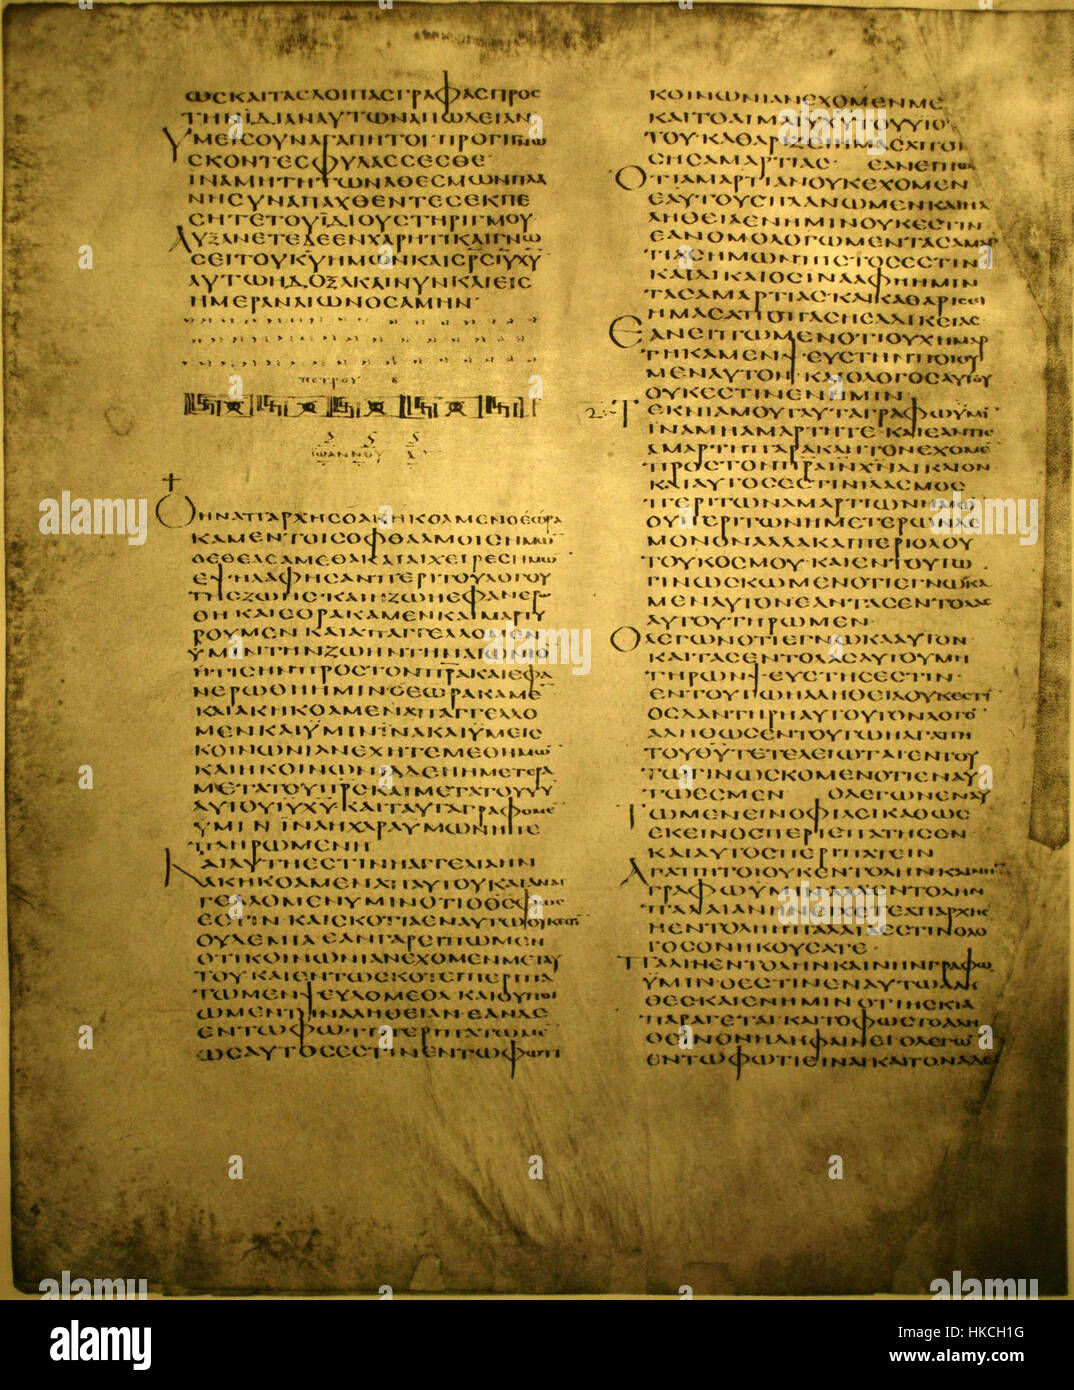 ωσκαιταςλοιπαςγραφαςπρος
τηνϊδιαναυτωναπωλειαν
υμειςουναγαπητοιπρογινω
σκοντεςφυλασσεσθε
ιναμητητωναθεσμωνπλα
νησυναπαχθεντεςεκπε
σητετουϊδιουστηριγμου
αυξανετεδεενχαριτικαιγνω
σειτουκυημωνκαισρσιυχυ
αυτωηδοξακαινυνκαιεις
ημεραναιωνοςαμην
πετρου β
ιωαννου α
οηναπαρχηςοακηκοαμενοεωρα
καμεντοισοφθαλμοισημω
εψηλαφησανπεριτουλογου
τησζωησκαιηζωηεφανερω
θηκαιεορακαμενκαιμαρτυ
ρουμενκαιαπαγγελλομεν
ϋμιντηνζωηντηναιωνιο
ητισηνπροστονπρακαιεφα
νερωθηημινοεωρακαμε
καιακηκοαμεναπαγγελλο
μενκαιϋμινϊνακαιϋμεις
κοινωνιανεχητεμεθημω
καιηκοινωνιαδεηημετερα
μετατουπρσκαιμετατουυυ
αυτουιυχυκαιταυταγραφομε
ϋμινϊναηχαραυμωνηπε
πληρωμενη
καιαυτηεστινηαγγελιαην
ακηκοαμεναπαυτουκαιαναγ
γελλομενυμινοτιοθσφως
εστινκαισκοτιαεναυτωουκεστι
ουδεμιαεανγαρειπωμεν
οτικοινωνιανεχομενμεταυ
τουκαιεντωσκοτειπεριπα
τωμενψευδομεθακαιουποι
ωμεντηναληθειανεανδε
εντωφωτιπεριπατωμε
ωσαυτοσεστινεντωφωτι
κοινωνιανεχομενμε
καιτοαιμαιυχυτουυυιο
τουκαθαριζειημασαποπα
σησαμαρτιας εανειπωμ
οτιαμαρτιανουκεχομεν
εαυτουσπλανωμενκαιηα
ληθειαενημινουκεστιν
εανομολογωμεντασαμαρ
τιασημωνπιστοσεστιν
καιδικαιοσινααφηημιν
τασαμαρτιασκαικαθαρισει
ημασαποπασησαδικειας
εανειπωμενοτιουχημαρ
τηκαμενψευστηνποιου
μεναυτονκαιολογοσαυτου
ουκεστινενημιν
τεκνιαμουταυταγραφωϋμι
ιναμηαμαρτητεκαιεαντισ
αμαρτηπαρακλητονεχομε
προστονπραινχνδικαιον
καιαυτοσεστινιλασμος
περιτωναμαρτιωνημω
ουπεριτωνημετερωνδε
μονοναλλακαιπεριολου
τουκοσμουκαιεντουτω
γινωσκωμενοτιεγνωκα
μεναυτονεαντασεντολας
αυτουτηρωμεν
ολεγωνοτιεγνωκααυτον
καιτασεντολασαυτουμη
τηρωνψευστησεστιν
εντουτωηαληθειαουκεστι
οσδαντηρηαυτουτονλογο
αληθωσεντουτωηαγαπη
τουθυτετελειωταιεντου
τωγινωσκομενοτιεναυ
τωεσμεν ολεγωνεναυ
τωμενεινοφιλεικαθως
εκεινοσπεριεπατησεν
καιαυτοσπεριπατειν
αγαπητοιουκεντοληνκαινη
γραφωϋμιναλλεντολην
παλαιανηνειχετεαπαρχης
ηεντοληηπαλαιαεστινολο
γοσονηκουσατε
παλινεντοληνκαινηνγραφω
ϋμινοεστιναληθεσεναυτω
θεσκαιενημινοτιησκια
παραγεταικαιτοφωστοαλη
θεινονηδηφαινειολεγω
εντωφωτιειναικαιτοναδελ
alamy
a
Image ID: HKCH1G
www.alamy.com